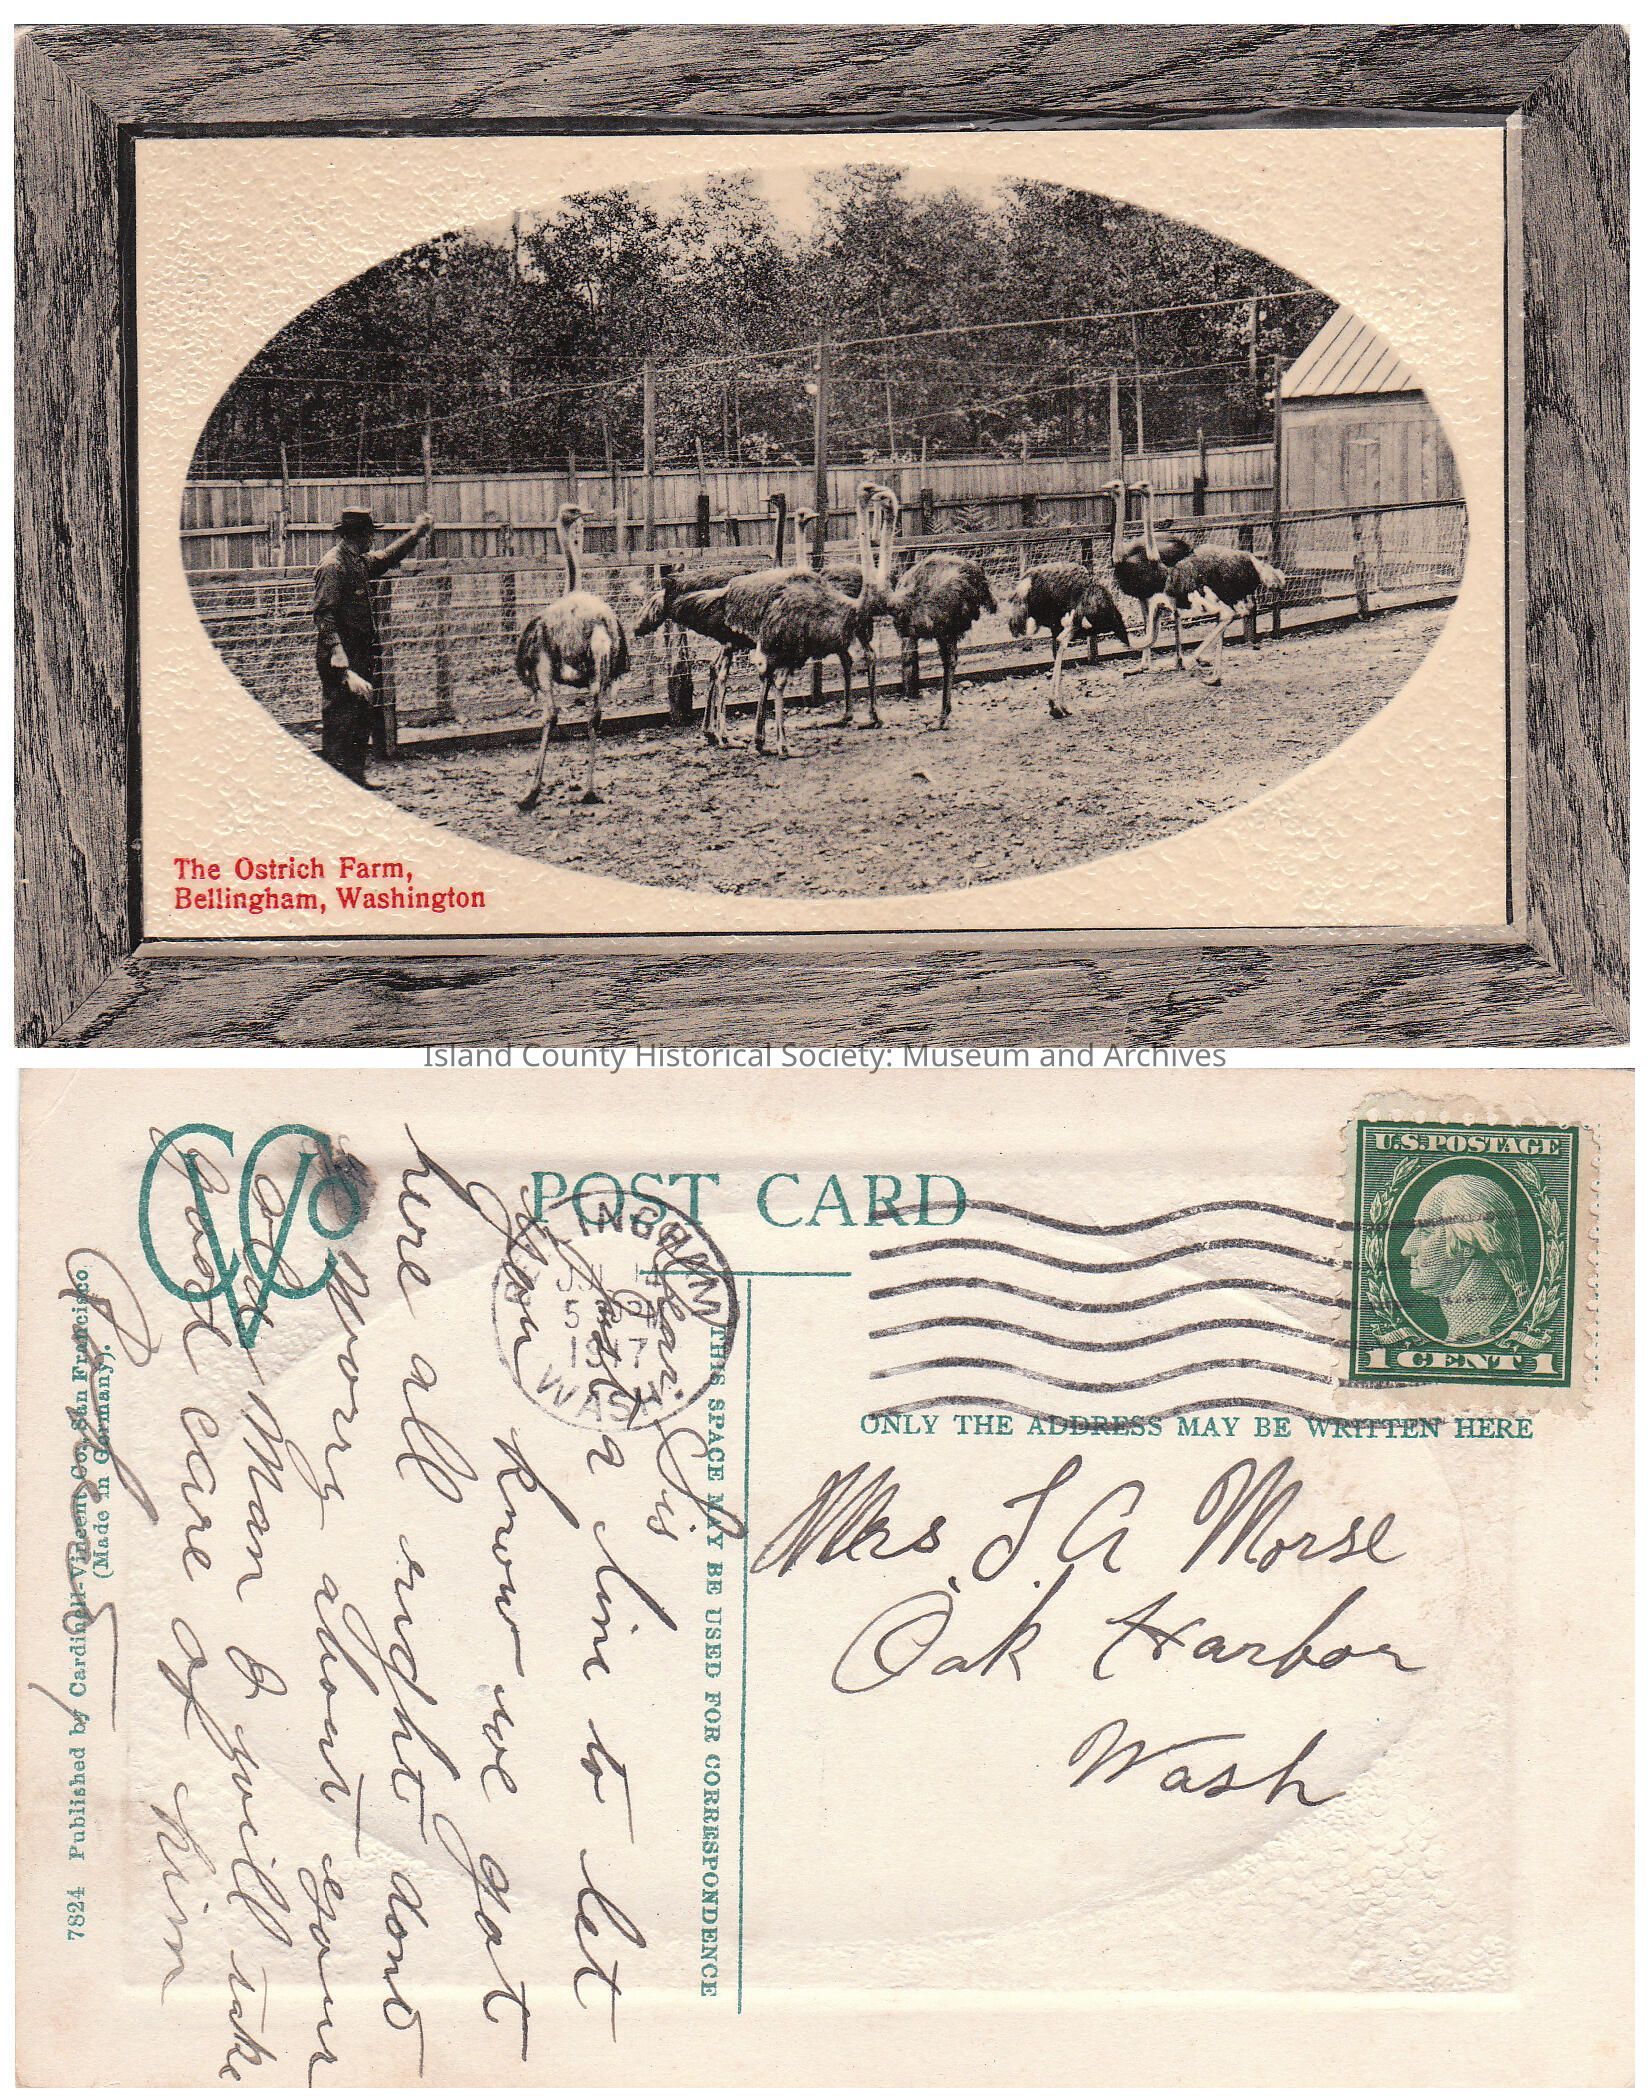 The Ostrich Farm,
Bellingham, Washington
Island County Historical Society: Museum and Archives
POST CARD
INGHAM
5
WASH
U.S. POSTAGE
1 CENT 1
THIS SPACE MAY BE USED FOR CORRESPONDENCE
ONLY THE ADDRESS MAY BE WRITTEN HERE
Mrs. J A Morse
Oak Harbor
Wash
Dear Sis
Just a line to let
you Know we got
here all right dont
Worry about your
old Man I will take
Good care of him
7824 Published by Cardinell-Vincent Co., San Francisco
(Made in Germany).